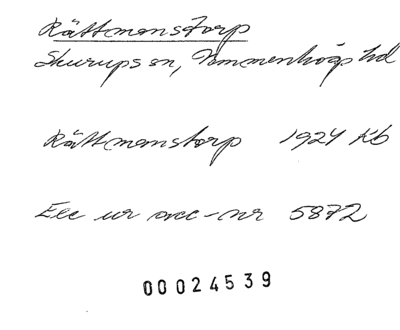 Rättmanstorp
Skurups sn, Vemmenhögs hd
Rättmanstorp 1924 Kb
Exc ur acc-nr 5872
00024539